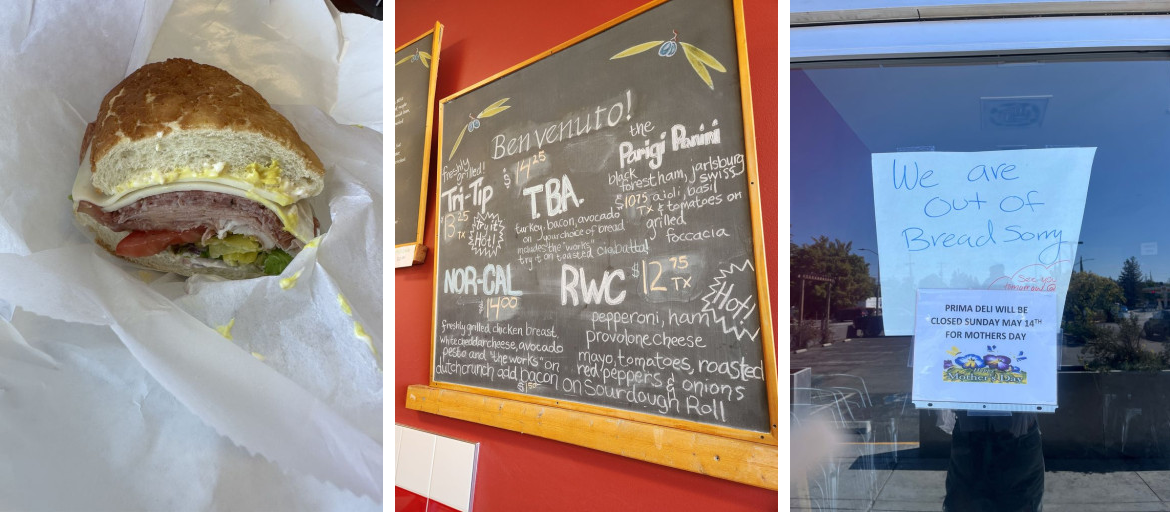 Benvenuto!
freshly
grilled!
Tri-Tip
13 25
TX
try it
Hot!
$14 25
T.B.A.
turkey, bacon, avocado
on your choice of bread
includes the "works"
try it on toasted ciabatta!
the
Parigi Panini
black
forest ham, jarlsburg
swiss
$10 75 aioli, basil
TX & tomatoes on
grilled
foccacia
NOR-CAL
$14 00
freshly grilled chicken breast
white cheddar cheese, avocado
pesto and "the works" on
dutchcrunch add bacon
$1
RWC $12 75
TX
Hot!
pepperoni, ham
provolone cheese
mayo, tomatoes, roasted
red peppers & onions
on Sourdough Roll
We are
out of
Bread Sorry
PRIMA DELI WILL BE
CLOSED SUNDAY MAY 14TH
FOR MOTHERS DAY
Mother's Day